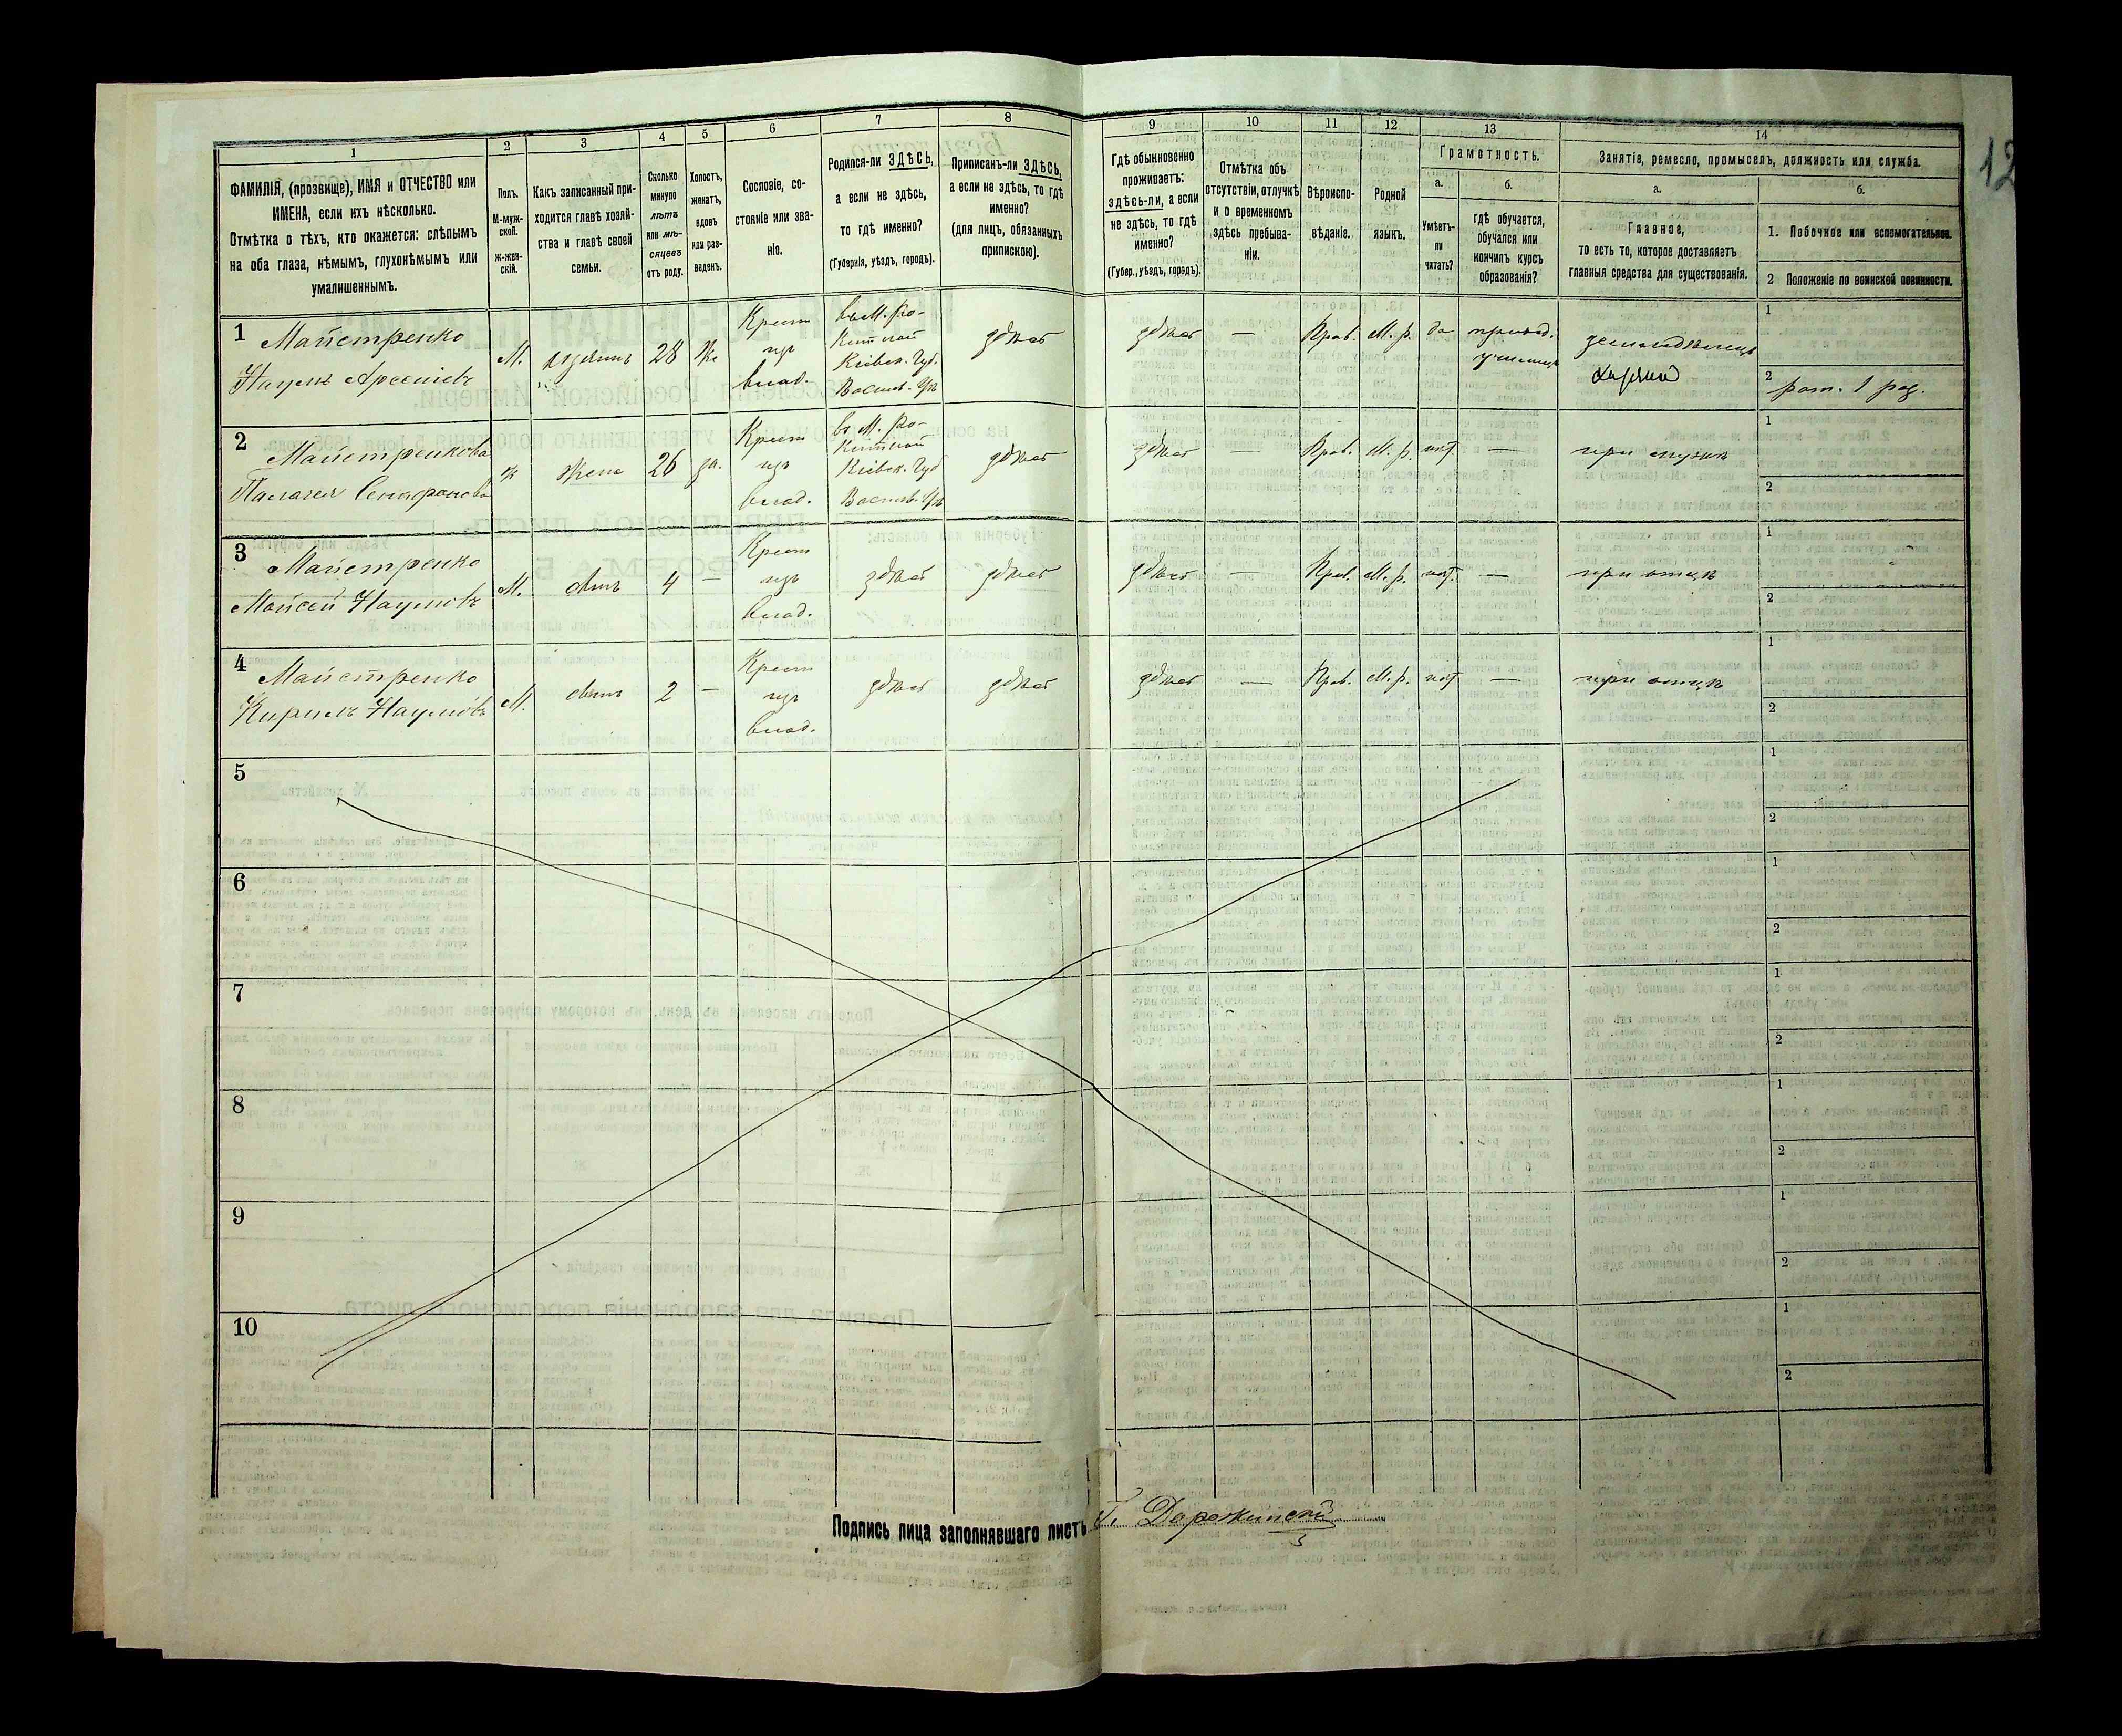 12
1
2
3
4
5
6
7
8
9
10
11
12
13
14
ФАМИЛІЯ, (прозвище), ИМЯ и ОТЧЕСТВО или
ИМЕНА, если ихъ нѣсколько.
Отмѣтка о тѣхъ, кто окажется: слѣпымъ
на оба глаза, нѣмымъ, глухонѣмымъ или
умалишеннымъ.
Полъ.
М-муж-
ской.
Ж-жен-
скій.
Какъ записанный при-
ходится главѣ хозяй-
ства и главѣ своей
семьи.
Сколько
минуло
лѣтъ
или мѣ-
сяцевъ
отъ роду.
Холостъ,
женатъ,
вдовъ
или раз-
веденъ.
Сословіе, со-
стояніе или зва-
ніе.
Родился-ли ЗДѢСЬ,
а если не здѣсь,
то гдѣ именно?
(Губернія, уѣздъ, городъ).
Приписанъ-ли ЗДѢСЬ,
а если не здѣсь, то гдѣ
именно?
(для лицъ, обязанныхъ
припискою).
Гдѣ обыкновенно
проживаетъ:
здѣсь-ли, а если
не здѣсь, то гдѣ
именно?
(Губер., уѣздъ, городъ).
Отмѣтка объ
отсутствіи, отлучкѣ
и о временномъ
здѣсь пребыва-
ніи.
Вѣроиспо-
вѣданіе.
Родной
языкъ.
Грамотность.
а.
Умѣетъ-
ли
читать?
б.
гдѣ обучается,
обучался или
кончилъ курсъ
образованія?
Занятіе, ремесло, промыселъ, должность или служба.
а.
Главное,
то есть то, которое доставляетъ
главныя средства для существованія.
б.
1. Побочное или вспомогательное.
2 Положеніе по воинской повинности.
1 Майстренко
Наумъ Арсеніевъ
М.
хозяинъ
28
Же
Крест
изъ
влад.
въ М. Ро-
китной
Кіевск. Губ.
Васильк. У.
здѣсь
здѣсь
—
Прав.
М. р.
да
приход.
училищ
земледѣлецъ
хозяинъ
1
2 рат. 1 раз.
2 Майстренкова
Палагея
ж
жена
26
за.
Крест
изъ
влад.
въ М. Ро-
китной
Кіевск. Губ
Васильк. У.
здѣсь
здѣсь
—
Прав.
М. р.
нѣт
—
при мужѣ
1
2
3 Майстренко
Мойсей Наумовъ
М.
сынъ
4
—
Крест
изъ
влад.
здѣсь
здѣсь
здѣсь
—
Прав.
М. р.
нѣт.
—
при отцѣ
1
2
4 Майстренко
Кирилъ Наумовъ
М.
сынъ
2
—
Крест
изъ
влад.
здѣсь
здѣсь
здѣсь
—
Прав.
М. р.
нѣт
—
при отцѣ
1
2
5
1
2
6
1
2
7
1
2
8
1
2
9
1
2
10
1
2
Подпись лица заполнявшаго листъ Дорожинскій